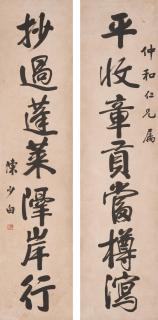 仲和仁兄屬
平收章貢當樽瀉
抄過蓬萊岸行
陳少白